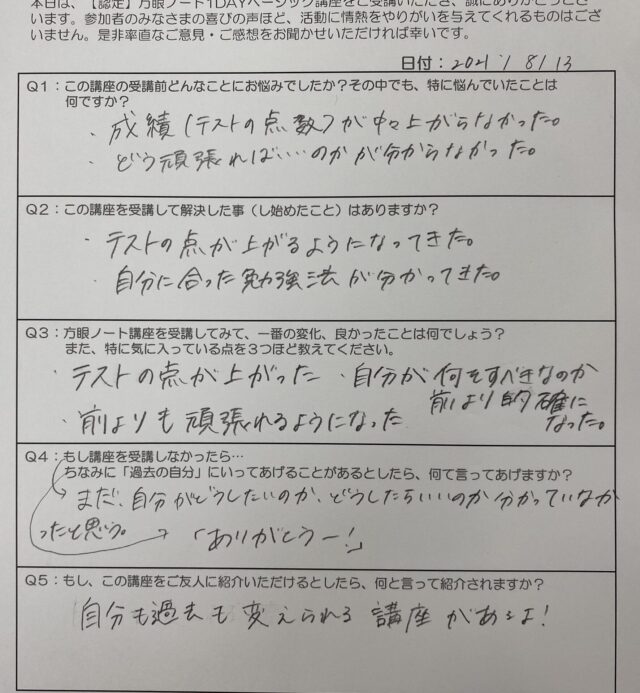 本日は、【認定】方眼ノート1DAYベーシック講座をご受講いただき、誠にありがとうござ
います。参加者のみなさまの喜びの声ほど、活動に情熱をやりがいを与えてくれるものはござ
いません。是非率直なご意見・ご感想をお聞かせいただければ幸いです。
日付: 2021 / 8 / 13
Q1:この講座の受講前どんなことにお悩みでしたか?その中でも、特に悩んでいたことは
何ですか?
・成績(テストの点数)が中々上がらなかった。
・どう頑張れば・・・・のかが分からなかった。
Q2:この講座を受講して解決した事(し始めたこと)はありますか?
・テストの点が上がるようになってきた。
・自分に合った勉強法が分かってきた。
Q3:方眼ノート講座を受講してみて、一番の変化、良かったことは何でしょう?
また、特に気に入っている点を3つほど教えてください。
・テストの点が上がった ・自分が何をすべきなのか
前より的確に
なった。
・前よりも頑張れるようになった
Q4:もし講座を受講しなかったら…
ちなみに「過去の自分」にいってあげることがあるとしたら、何て言ってあげますか?
まだ、自分がどうしたいのか、どうしたらいいのか分かっていなか
ったと思う。 → 「ありがとうー!」
Q5:もし、この講座をご友人に紹介いただけるとしたら、何と言って紹介されますか?
自分も過去も変えられる講座があるよ!